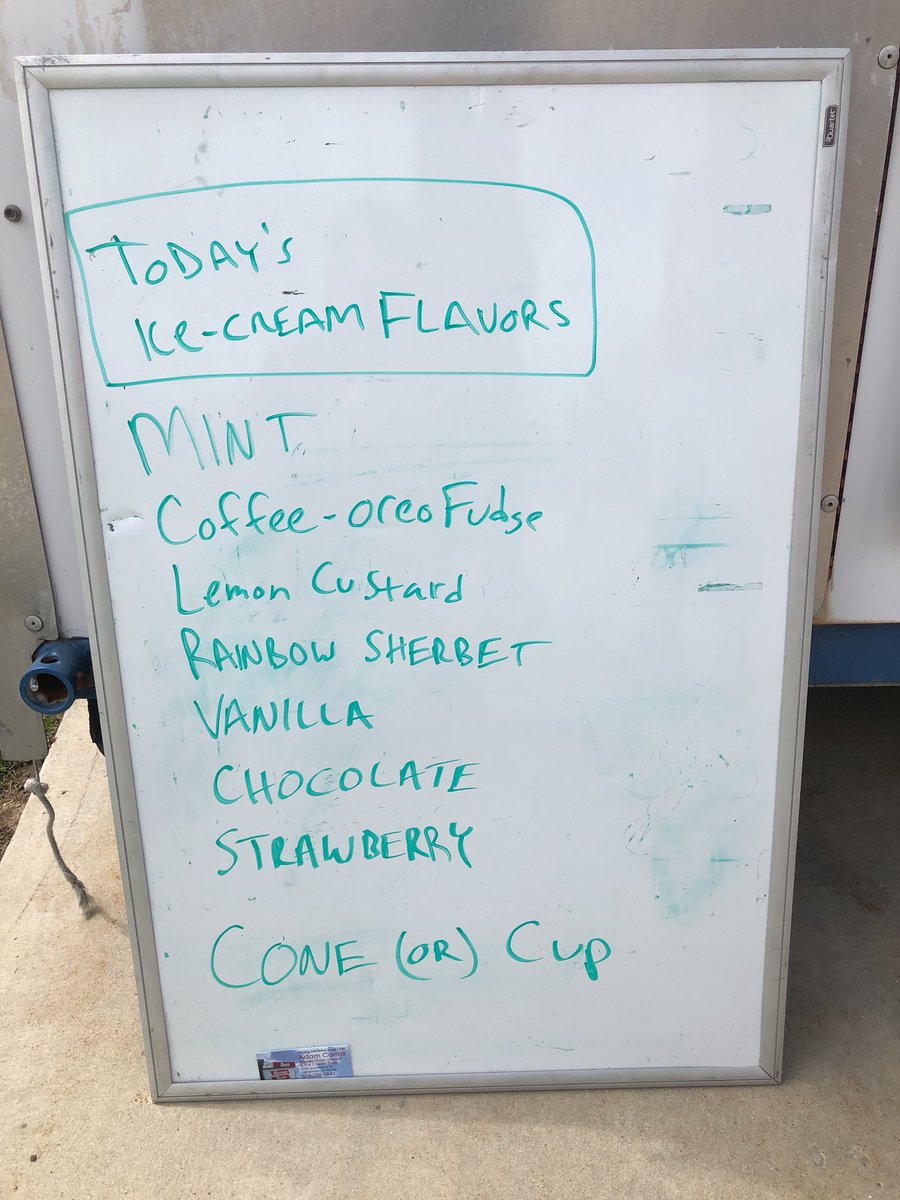 TODAY'S
Ice-CREAM FLAVORS
MINT
Coffee-oreo Fudge
Lemon Custard
RAINBOW SHERBET
VANILLA
CHOCOLATE
STRAWBERRY
CONE (OR) Cup
Quartet
Adam Carroll